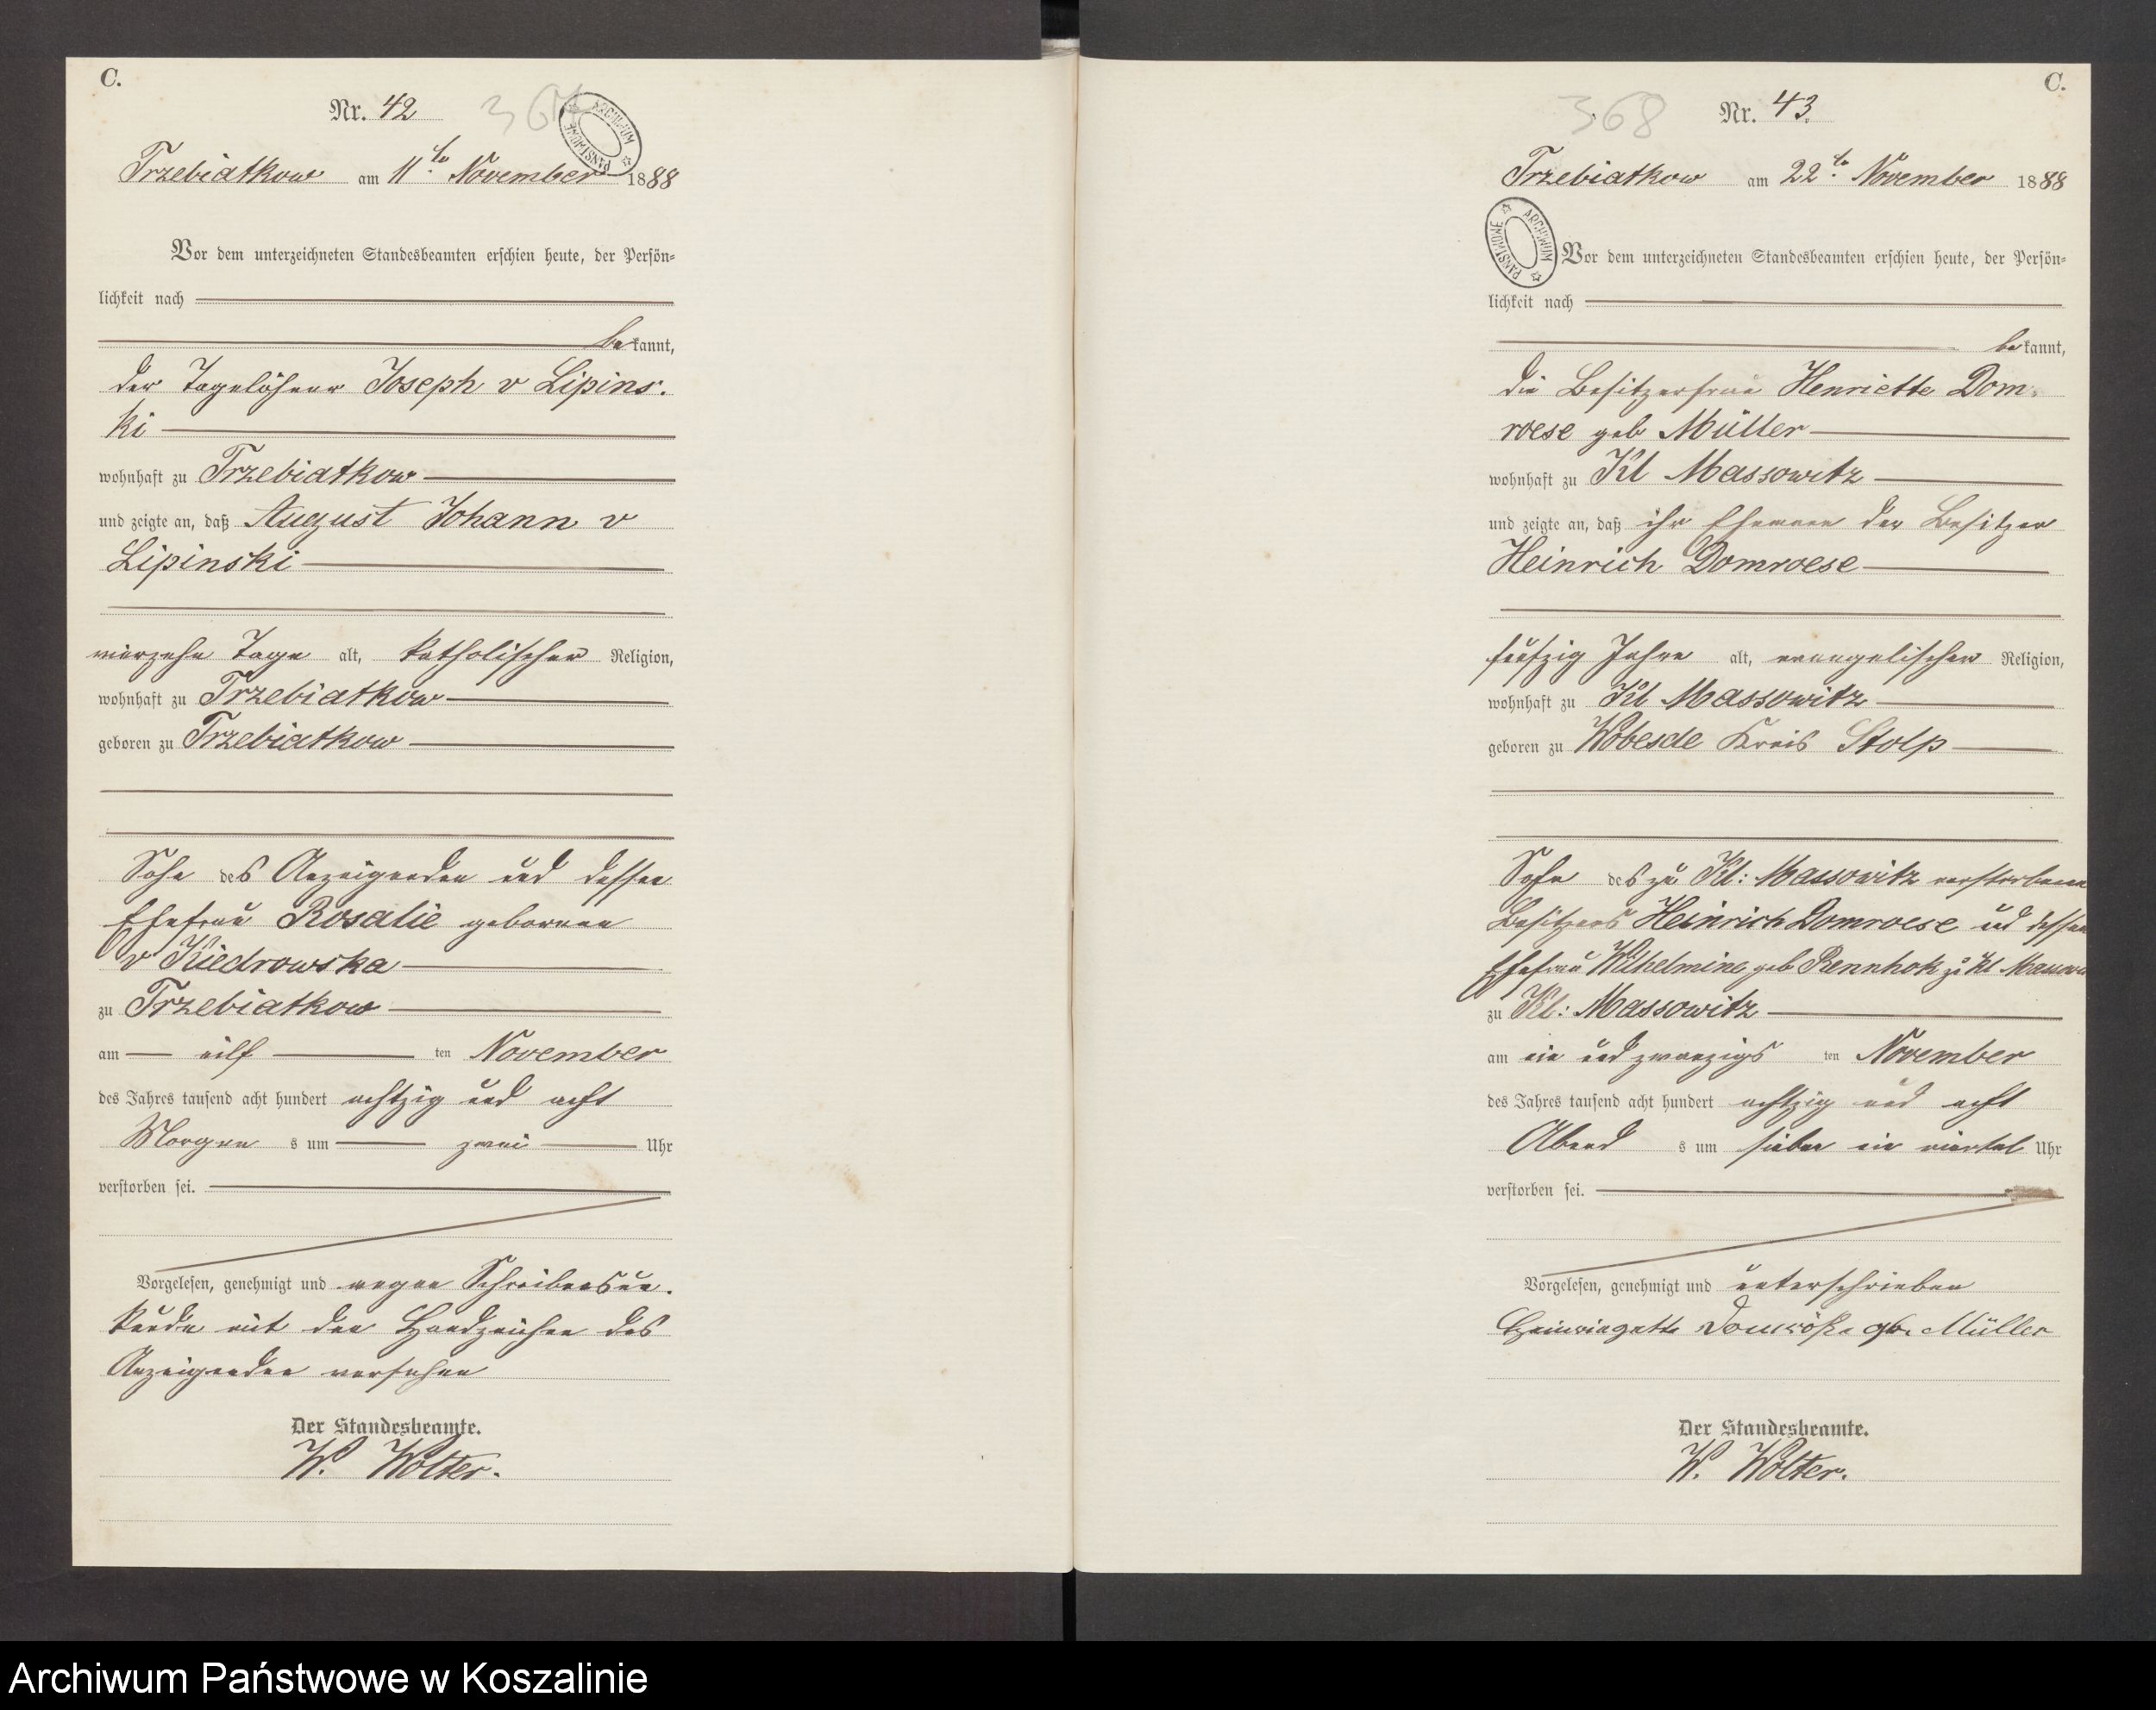 C.
Nr. 42
ARCHIWUM PAŃSTWOWE
Trzebiatkow am 11ten November 1888
Vor dem unterzeichneten Standesbeamten erschien heute, der Persön-
lichkeit nach
bekannt,
der Tagelöhner Joseph v Lipins.
ki
wohnhaft zu Trzebiatkow
und zeigte an, daß August Johann v
Lipinski
vierzehn Tage alt, katholischer Religion,
wohnhaft zu Trzebiatkow
geboren zu Trzebiatkow
Sohn des Anzeigenden und dessen
Ehefrau Rosalie geborenen
v Kiedrowska
zu Trzebiatkow
am eilf ten November
des Jahres tausend acht hundert achtzig und acht
Morgen s um zwei Uhr
verstorben sei.
Vorgelesen, genehmigt und wegen Schreibensun.
kunde mit den Handzeichen des
Anzeigenden versehen
Der Standesbeamte.
W. Wolter.
C.
368 Nr. 43
Trzebiatkow am 22ten November 1888
ARCHIWUM PAŃSTWOWE
Vor dem unterzeichneten Standesbeamten erschien heute, der Persön-
lichkeit nach
bekannt,
die Besitzerfrau Henriette Dom-
roese geb Müller
wohnhaft zu Kl Massowitz
und zeigte an, daß ihr Ehemann der Besitzer
Heinrich Domroese
fünfzig Jahre alt, evangelischer Religion,
wohnhaft zu Kl Massowitz
geboren zu Wobesde Kreis Stolp
Sohn des zu Kl: Massowitz verstorbenen
Besitzers Heinrich Domroese und dessen
Ehefrau Wilhelmine geb Rennhok zu Kl
zu Kl: Massowitz
am ein und zwanzigs ten November
des Jahres tausend acht hundert achtzig und acht
Abend s um sieben ein viertel Uhr
verstorben sei.
Vorgelesen, genehmigt und unterschrieben
Domröse gb. Müller
Der Standesbeamte.
W. Wolter.
Archiwum Państwowe w Koszalinie